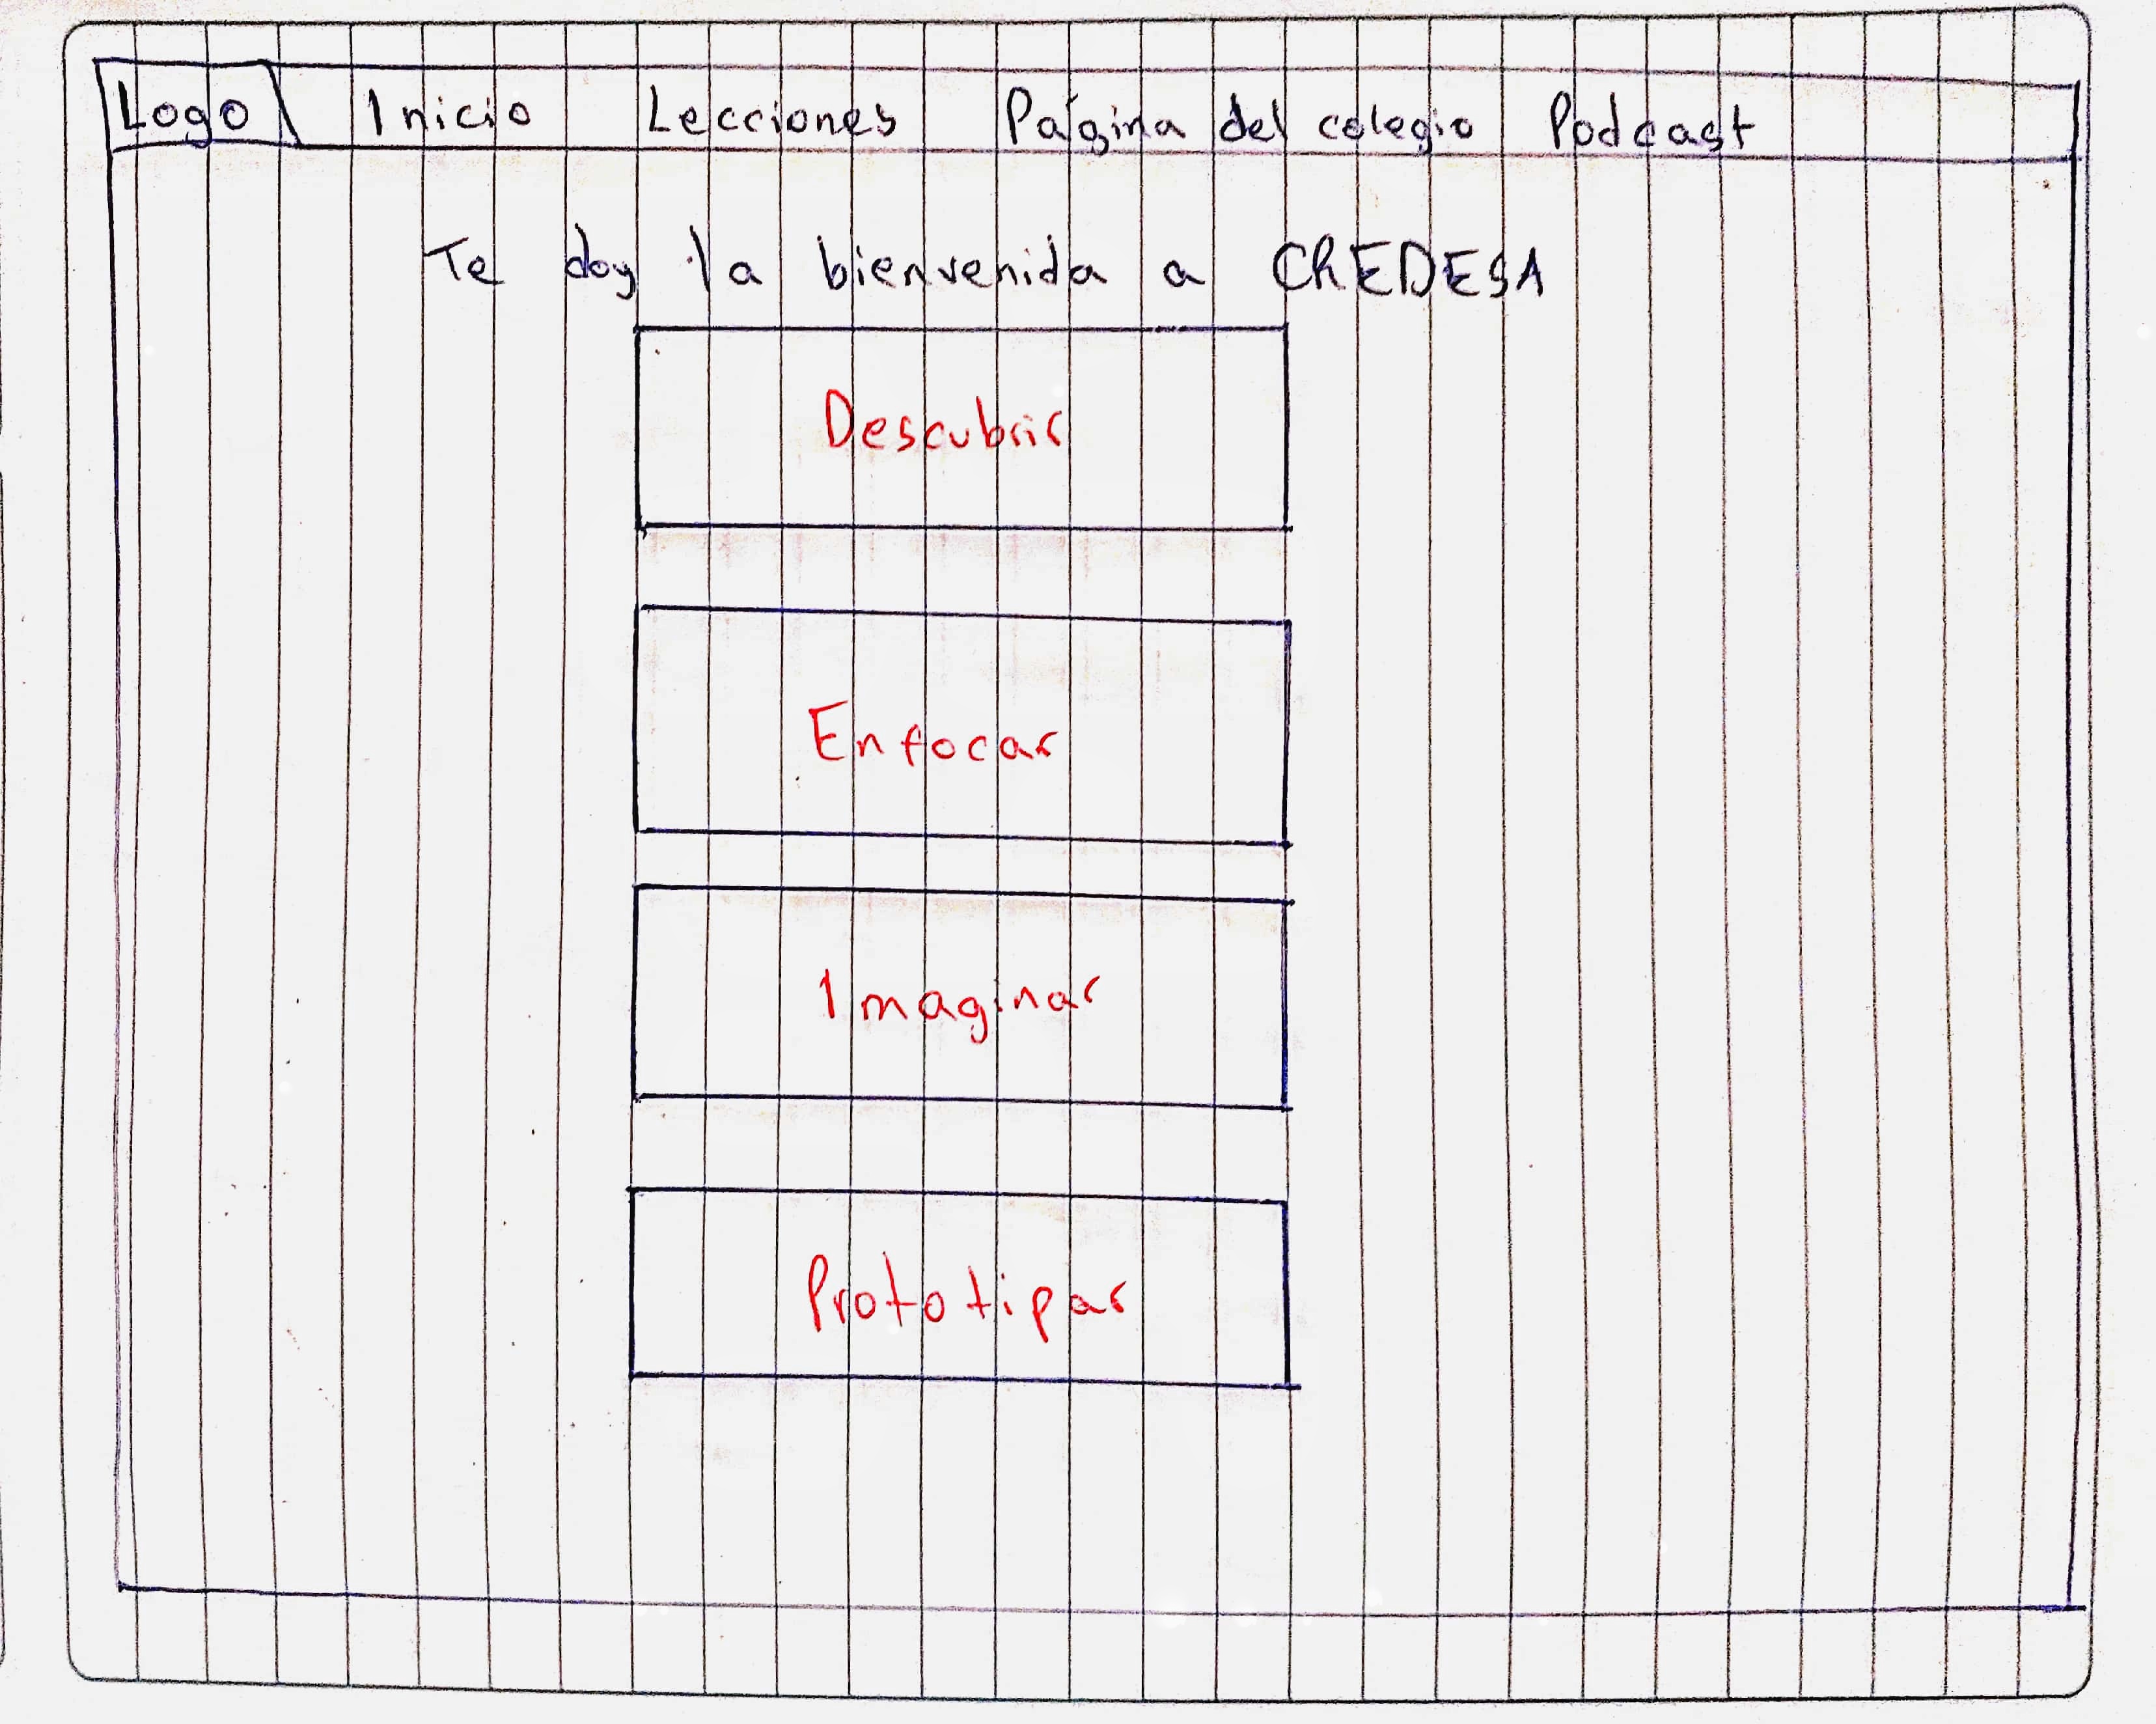 Logo Inicio Lecciones Página del colegio Podcast
Te doy la bienvenida a CREDESA
Descubrir
Enfocar
Imaginar
Prototipar